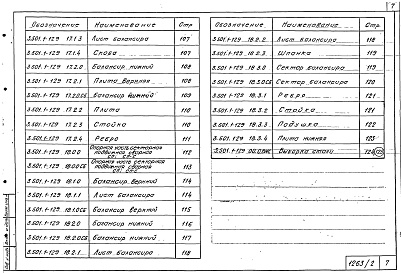 7
Обозначение Наименование Стр
3.501.1-129 17.1.3 Лист балансира 107
3.501.1-129 17.1.4 Скоба 107
3.501.1-129 17.2.0 Балансир нижний 108
3.501.1-129 17.2.1 Плита верхняя 108
3.501.1-129 17.2.0СБ Балансир нижний 109
3.501.1-129 17.2.2 Плита 110
3.501.1-129 17.2.3 Стойка 110
3.501.1-129 17.2.4 Ребро 111
3.501.1-129 18.0.0 Опорная часть секторная подвижная сборная 112
3.501.1-129 18.0.0СБ Опорная часть секторная подвижная сборная 113
3.501.1-129 18.1.0 Балансир верхний 114
3.501.1-129 18.1.1 Лист балансира 114
3.501.1-129 18.1.0СБ Балансир верхний 115
3.501.1-129 18.2.0 Балансир нижний 116
3.501.1-129 18.2.0СБ Балансир нижний 117
3.501.1-129 18.2.1 Лист балансира 118
Обозначение Наименование Стр.
3.501.1-129 18.2.2 Лист балансира 118
3.501.1-129 18.2.3 Шпонка 119
3.501.1-129 18.3.0 Сектор балансира 119
3.501.1-129 18.3.0СБ Сектор балансира 120
3.501.1-129 18.3.1 Ребро 121
3.501.1-129 18.3.2 Стойка 121
3.501.1-129 18.3.3 Подушка 122
3.501.1-129 18.3.4 Плита нижняя 123
3.501.1-129 00.0ВС Выборка стали
1263/2 7